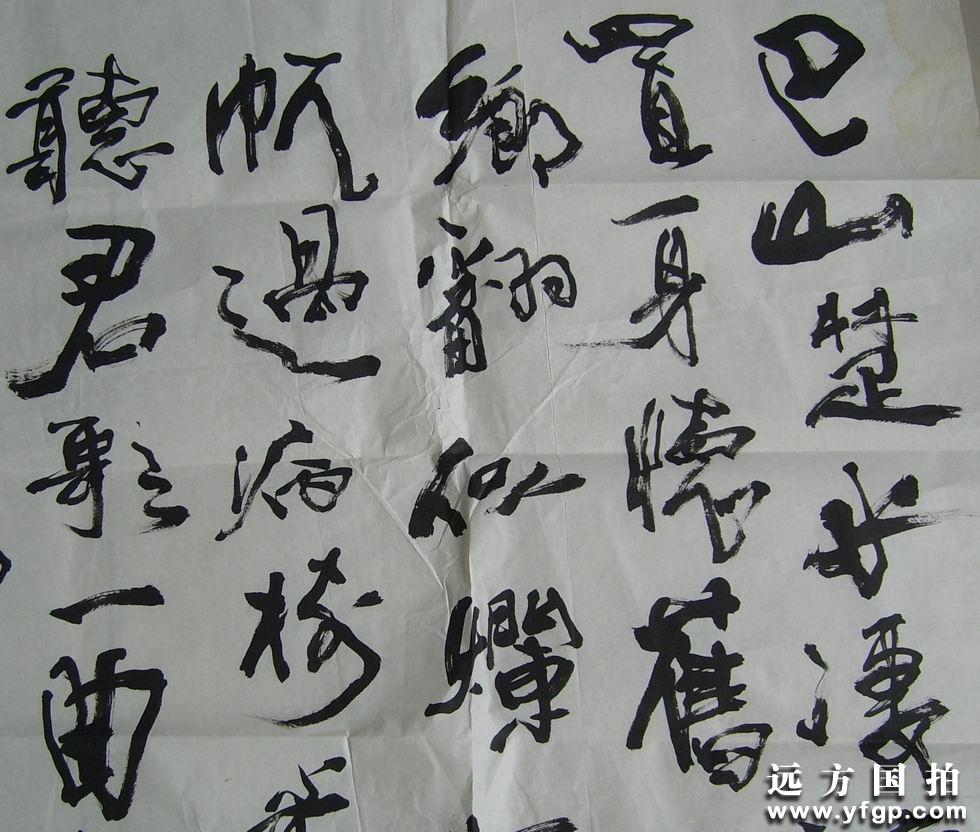 巴山楚水淒
置身懷舊
鄉翻似爛
帆過病樹
聽君歌一曲
远方国拍
www.yfgp.com